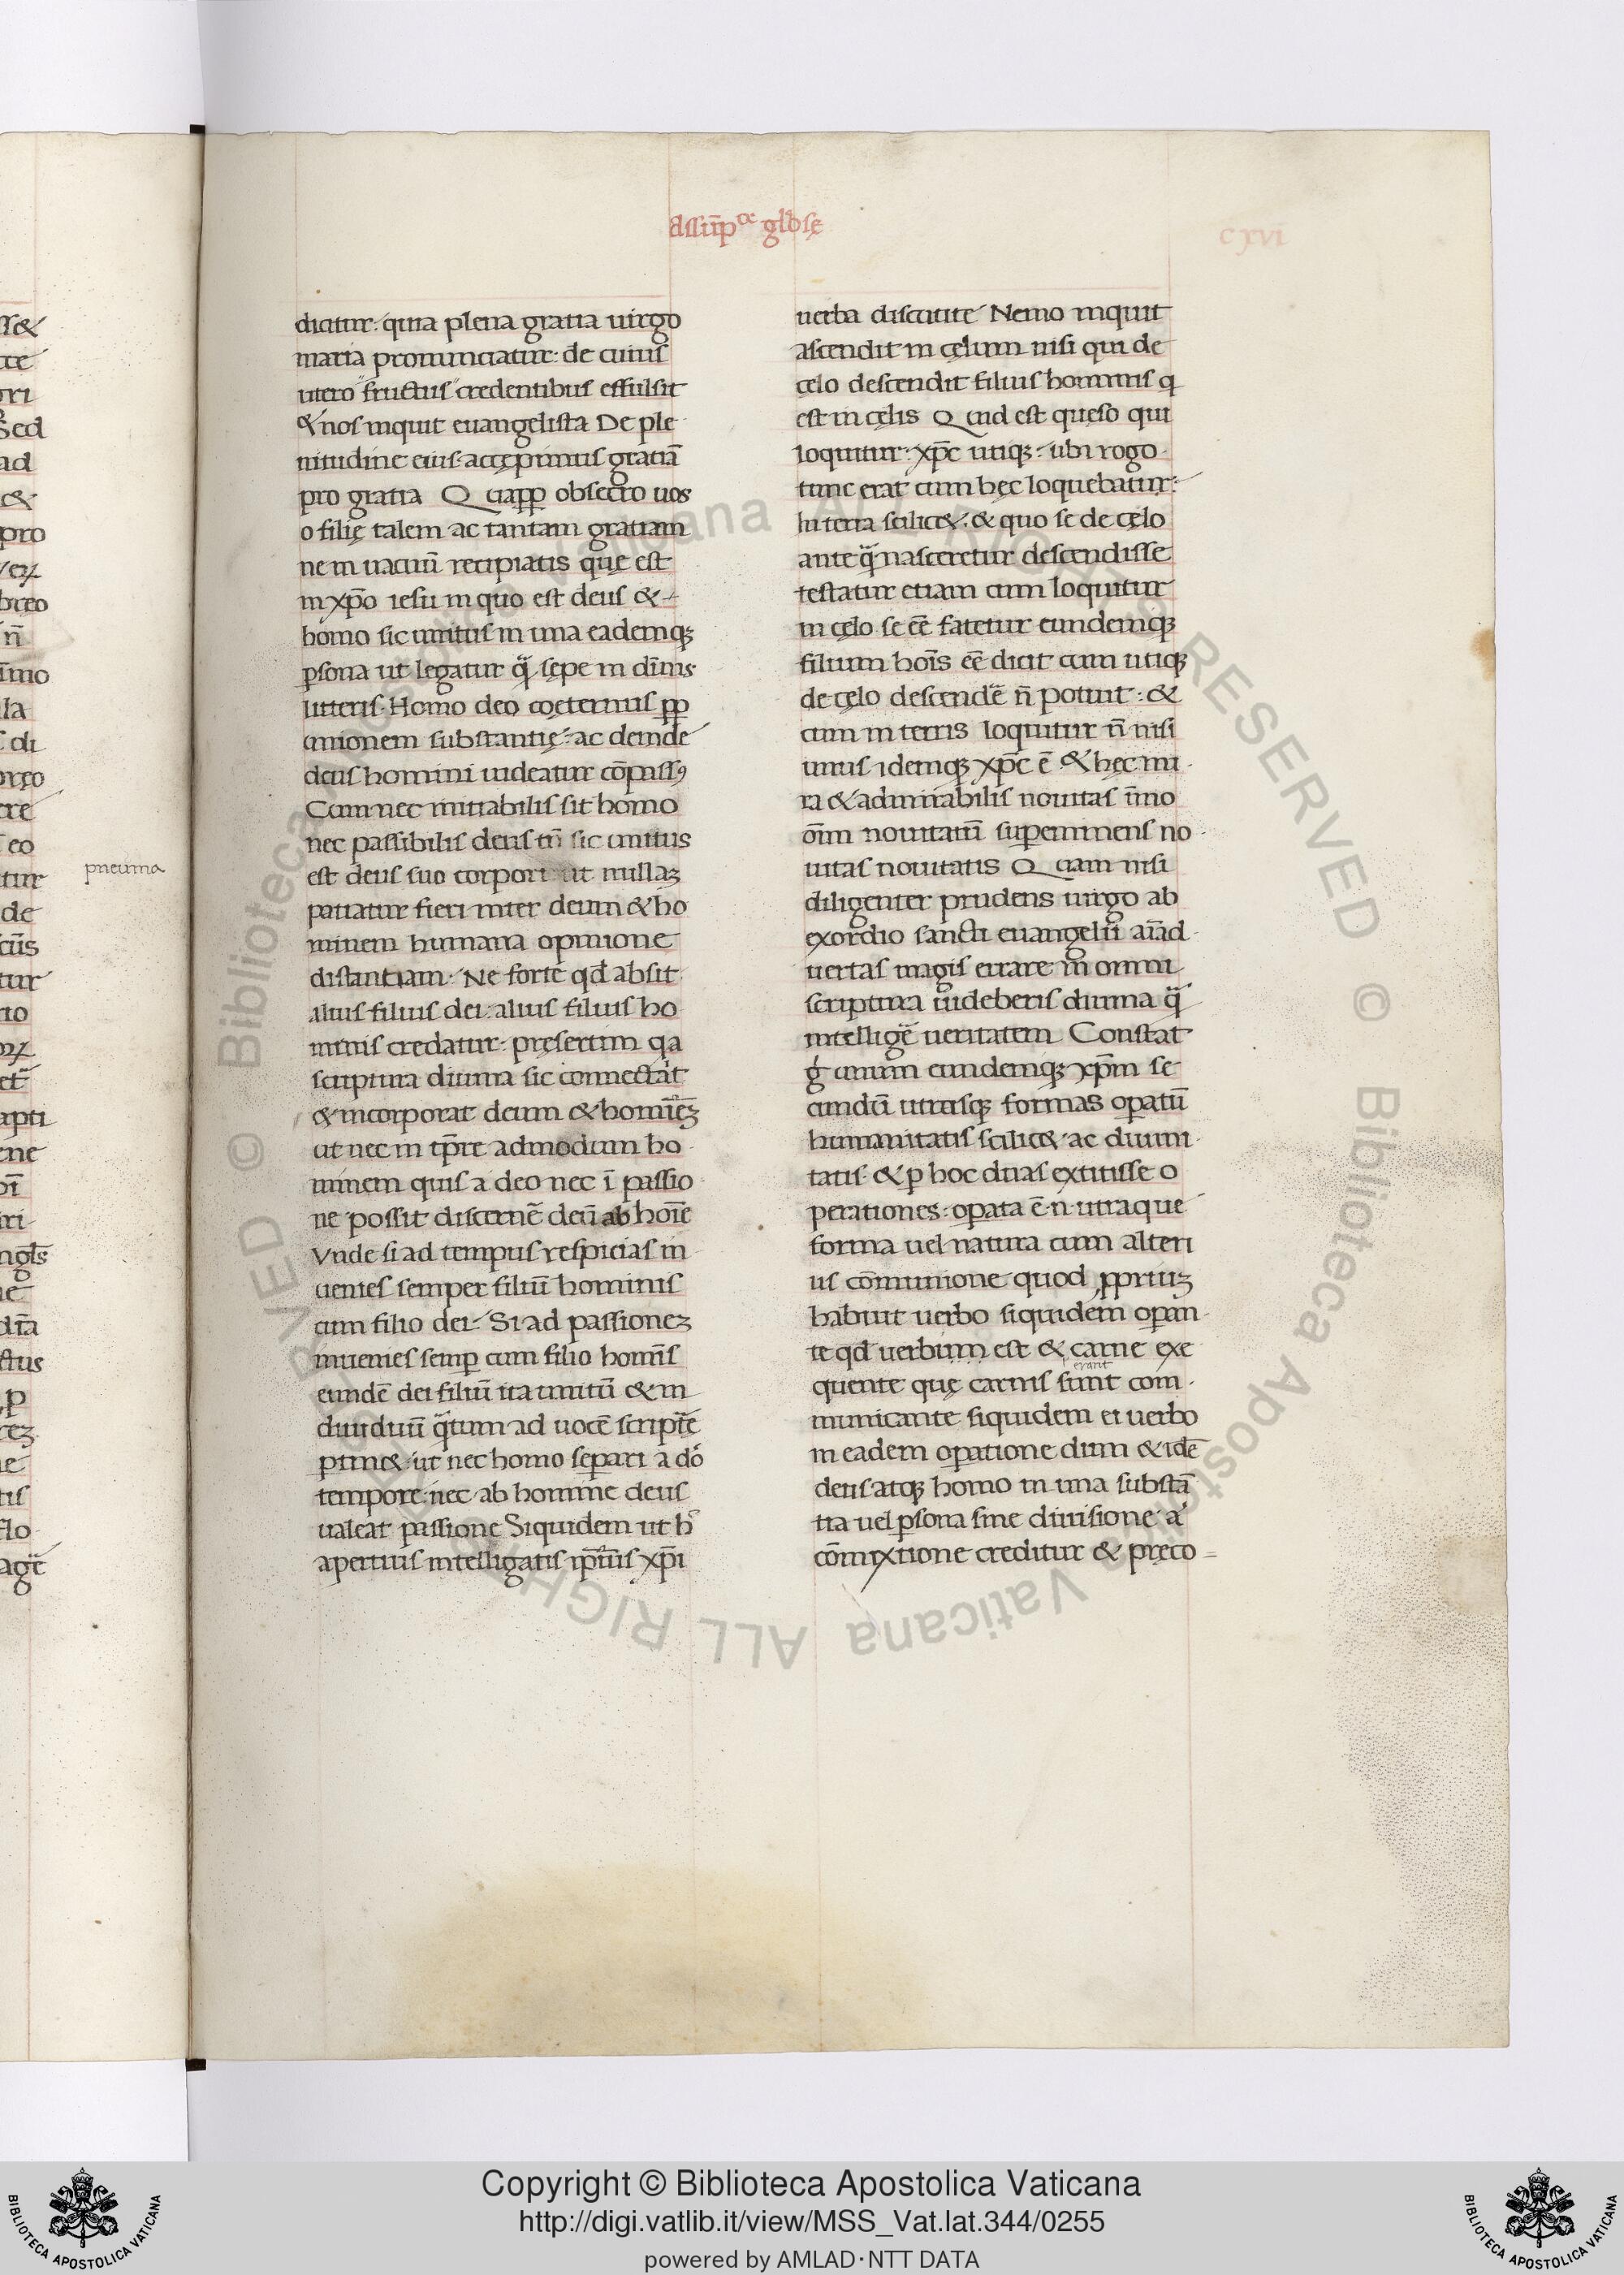 assūpᵒᵉ gloſę
cxvi
dicitur: quia plena gratia uirgo
maria pronunciatur: de cuius
utero fructus credentibus effulsit
& nos inquit euangelista De ple
nitudine eius accepimus gratiā
pro gratia Quapp obsecro uos
o filię talem ac tantam gratiam
ne in uacuū recipiatis quę est
in xp̄o iesu in quo est deus &
homo sic unitus in una eademqꝫ
psona ut legatur sępe in diīnis
litteris Homo deo coęternus pp
unionem substantię: ac deinde
deus homini uideatur cōpassꝰ
Cum nec mutabilis sit homo
nec passibilis deus tn̄ sic unitus
est deus suo corpori ut nullaꝫ
patiatur fieri inter deum & ho
minem humana opinione
distantiam. Ne forte qđ absit
alius filius dei alius filius ho
minis credatur: pręsertim qa
scriptura diuina sic connectat
& incorporat deum & hominēꝫ
ut nec in tp̄re admodum ho
minem quis a deo nec ī passio
ne possit discernē deū ab hoīe
Vnde si ad tempus respicias in
uenies semper filiū hominis
cum filio dei. Si ad passioneꝫ
inuenies semp cum filio homīs
eundē dei filiū ita unitū & in
diuiduū tum ad uocē script̄e
ptin& ut nec homo separi a dō
tempore nec ab homine deus
ualeat passione Siquidem ut h
apertius intelligatis xp̄i
uerba discutite Nemo inquit
ascendit in cęlum nisi qui de
cęlo descendit filius hominis q
est in cęlis Quid est quęso qui
loquitur: xp̄c utiqꝫ: ubi rogo
tunc erat cum hęc loquebatur:
In terra scilic&: & quo se de cęlo
ante nasceretur descendisse
testatur etiam cum loquitur
in cęlo se eē fatetur eundemqꝫ
filium hoīs eē dicit cum utiqꝫ
de cęlo descendē n̄ potuit: &
cum in terris loquitur n̄ nisi
unus idemqꝫ xp̄c ē & hęc mi
ra & admirabilis nouitas īmo
oīm nouitatū supeminens no
uitas nouitatis Quam nisi
diligenter prudens uirgo ab
exordio sancti euangelii aīad
uertas magis errare in omni
scriptura uideberis diuina
intelligē ueritatem Constat
g unum eundemqꝫ xp̄m se
cundū utrasqꝫ formas opatū
humanitatis scilic& ac diuini
tatis & p hoc duas extitisse o
perationes: opata ē n utraque
forma uel natura cum alteri
us cōmunione quod ppriuꝫ
habuit uerbo siquidem opan
te qđ uerbum est & carne exe
erant
quente quę carnis sunt com
municante siquidem et uerbo
in eadem opatione dum & idē
deus atqꝫ homo in una substā
tia uel psona sine diuisione a
cōmixtione creditur & pręco
pneuma
Copyright © Biblioteca Apostolica Vaticana
http://digi.vatlib.it/view/MSS_Vat.lat.344/0255
powered by AMLAD·NTT DATA
BIBLIOTECA APOSTOLICA VATICANA
BIBLIOTECA APOSTOLICA VATICANA
© Biblioteca Apostolica Vaticana ALL RIGHTS RESERVED © Biblioteca Apostolica Vaticana ALL RIGHTS RESERVED